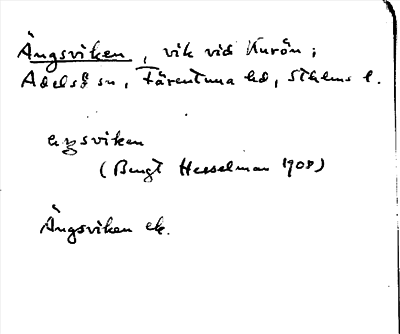 Ängsviken, vik vid Kurön;
Adelsö sn, Färentuna hd, Sthlms l.
ęŋsviken
(Bengt Hesselman 1908)
Ängsviken ek.